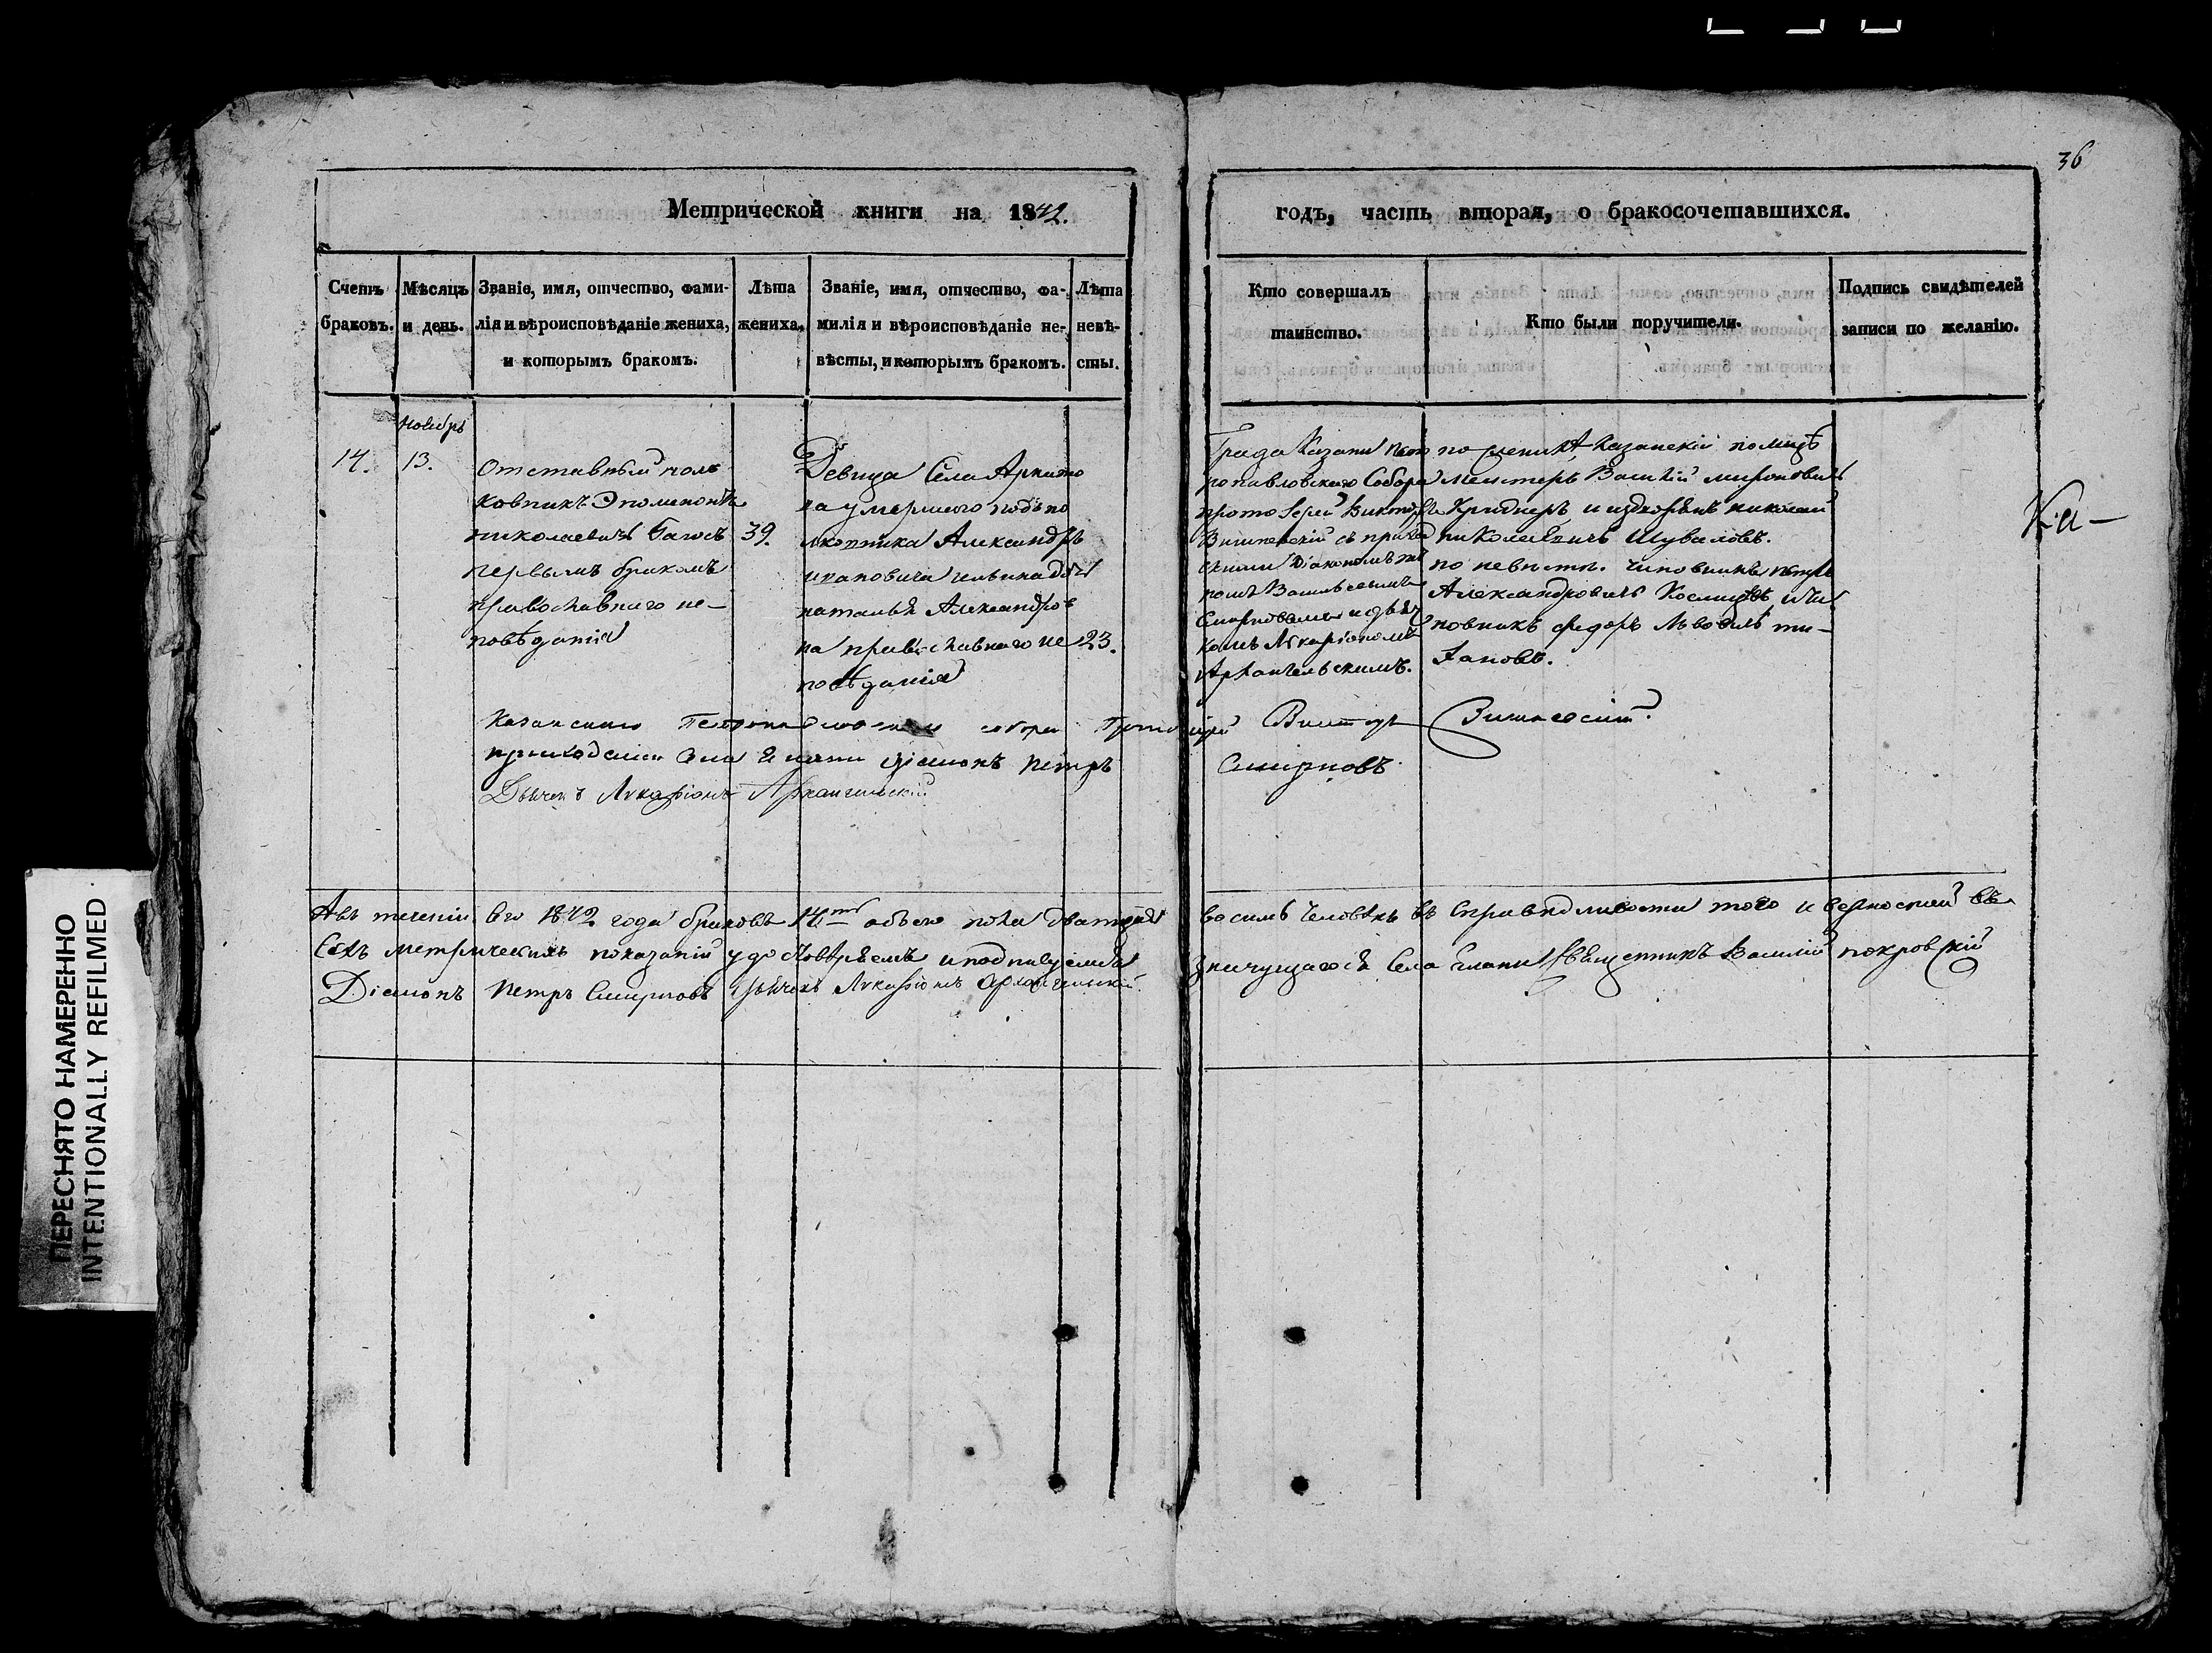 36
Метрической книги на 1842.
годъ, часть вторая, о бракосочетавшихся.
Счетъ браковъ.
Мѣсяцъ и день.
Званіе, имя, отчество, фами-
лія и вѣроисповѣданіе жениха,
и которымъ бракомъ.
Лѣта
жениха.
Званіе, имя, отчество, фа-
милія и вѣроисповѣданіе не-
вѣсты, и которымъ бракомъ.
Лѣта
невѣ-
сты.
Кто совершалъ
таинство.
Кто были поручители.
Подпись свидѣтелей
записи по желанію.
14.
Ноябрь
13.
Отставный пол
ковникъ
Николаевичь
первымъ бракомъ
православнаго ис-
повѣданія
39.
Девица Села
умершаго подъпо
лковника Александра
Ивановича дочь
Наталья Александров
на православнаго ис
повѣданія
23.
Града Казани Пет
ропавловскаго Собора
протоіерей Виктор
Вишневскій съ приход
скими Діакономъ
Смирновымъ и дьяч
комъ
Архангельскимъ.
по женихѣ Казанскій
Василій Мироновичь
и Николай
Николаевичь Шуваловъ.
по невѣсты. Чиновникъ Петръ
Александровичь и Чи
новникъ Федоръ Львовичь Ти-
хановъ.
К-а-
Казанскаго собора Протоіерей Викторъ Вишневскій
приходскіе Села Діаконъ Петръ Смирновъ
Дьячекъ Архангельскій
А въ теченіи 1842 года браковъ 14 обоего пола двадцать восемь человѣкъ въ справедливости того и верности въ
сѣхъ метрическихъ показаній удостовѣряемъ и подписуемся Села Священникъ Василій Покровскій
Діаконъ Петръ Смирновъ Дьячекъ Архангельскій
ПЕРЕСНЯТО НАМЕРЕННО
INTENTIONALLY REFILMED